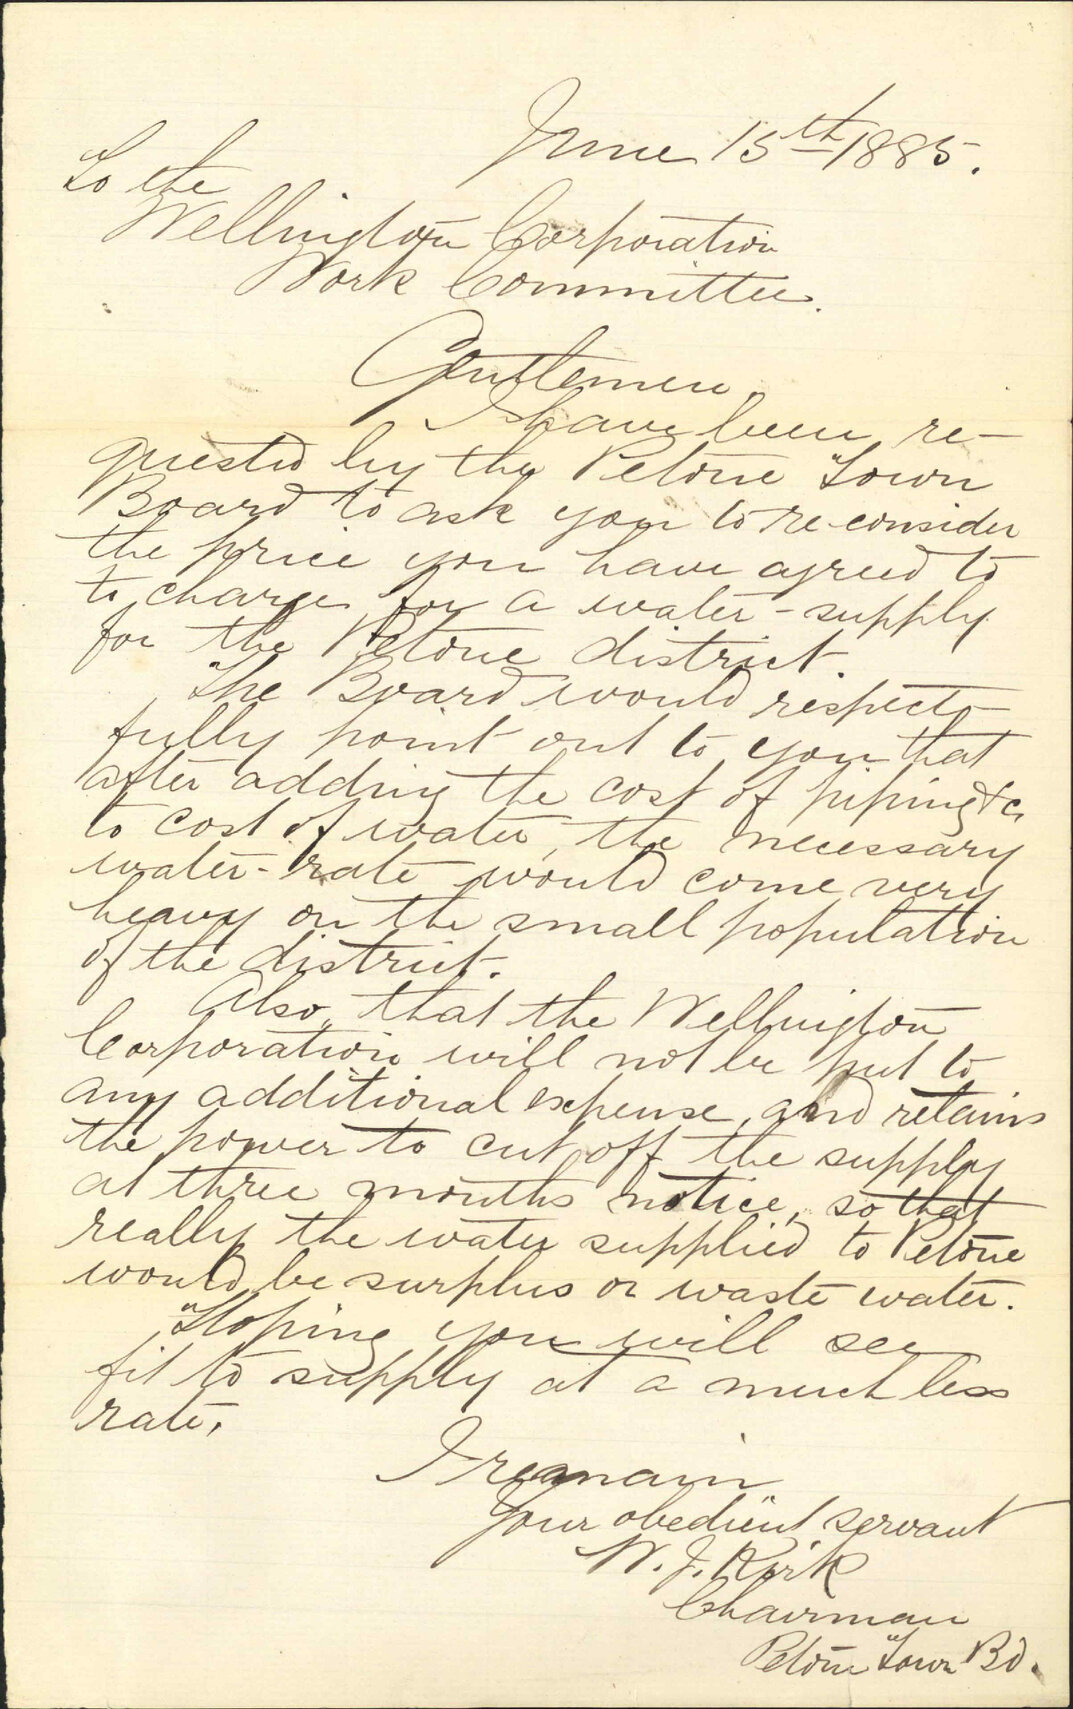 June 15th 1885.
To the
Wellington Corporation
Work Committee.
Gentlemen,
I have been re-
quested by the Petone Town
Board to ask you to re-consider
the price you have agreed to
to charge for a water-supply
for the Petone district.
The Board would respect-
fully point out to you that
after adding the cost of piping &c,
to cost of water, the necessary
water-rate would come very
heavy on the small population
of the district.
Also, that the Wellington
Corporation will not be put to
any additional expense, and retains
the power to cut off the supply
at three months notice, so that
really the water supplied to Petone
would be surplus or waste water.
Hoping you will see
fit to supply at a much less
rate,
I remain
Your obedient servant
W. J. Kirk
Chairman
Petone Town Bd.